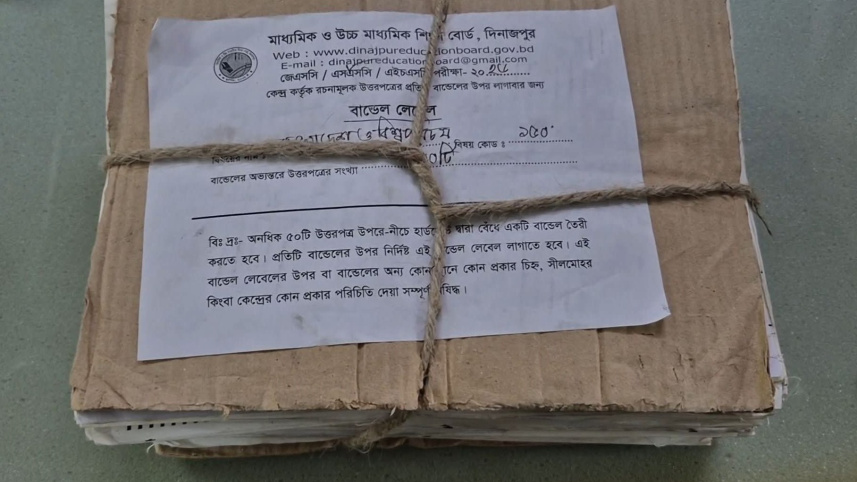 মাধ্যমিক ও উচ্চ মাধ্যমিক শিক্ষা বোর্ড, দিনাজপুর
Web : www.dinajpureducationboard.gov.bd
E-mail : dinajpureducationboard@gmail.com
জেএসসি / এসএসসি / এইচএসসি পরীক্ষা- ২০
কেন্দ্র কর্তৃক রচনামূলক উত্তরপত্রের প্রতি বান্ডেলের উপর লাগাবার জন্য
বান্ডেল লেবেল
বিষয় কোড : ১৫০
বান্ডেলের অভ্যন্তরে উত্তরপত্রের সংখ্যা
বিঃ দ্রঃ- অনধিক ৫০টি উত্তরপত্র উপরে-নীচে হার্ডবোর্ড দ্বারা বেঁধে একটি বান্ডেল তৈরী
করতে হবে। প্রতিটি বান্ডেলের উপর নির্দিষ্ট এই বান্ডেল লেবেল লাগাতে হবে। এই
বান্ডেল লেবেলের উপর বা বান্ডেলের অন্য কোন স্থানে কোন প্রকার চিহ্ন, সীলমোহর
কিংবা কেন্দ্রের কোন প্রকার পরিচিতি দেয়া সম্পূর্ণ নিষিদ্ধ।